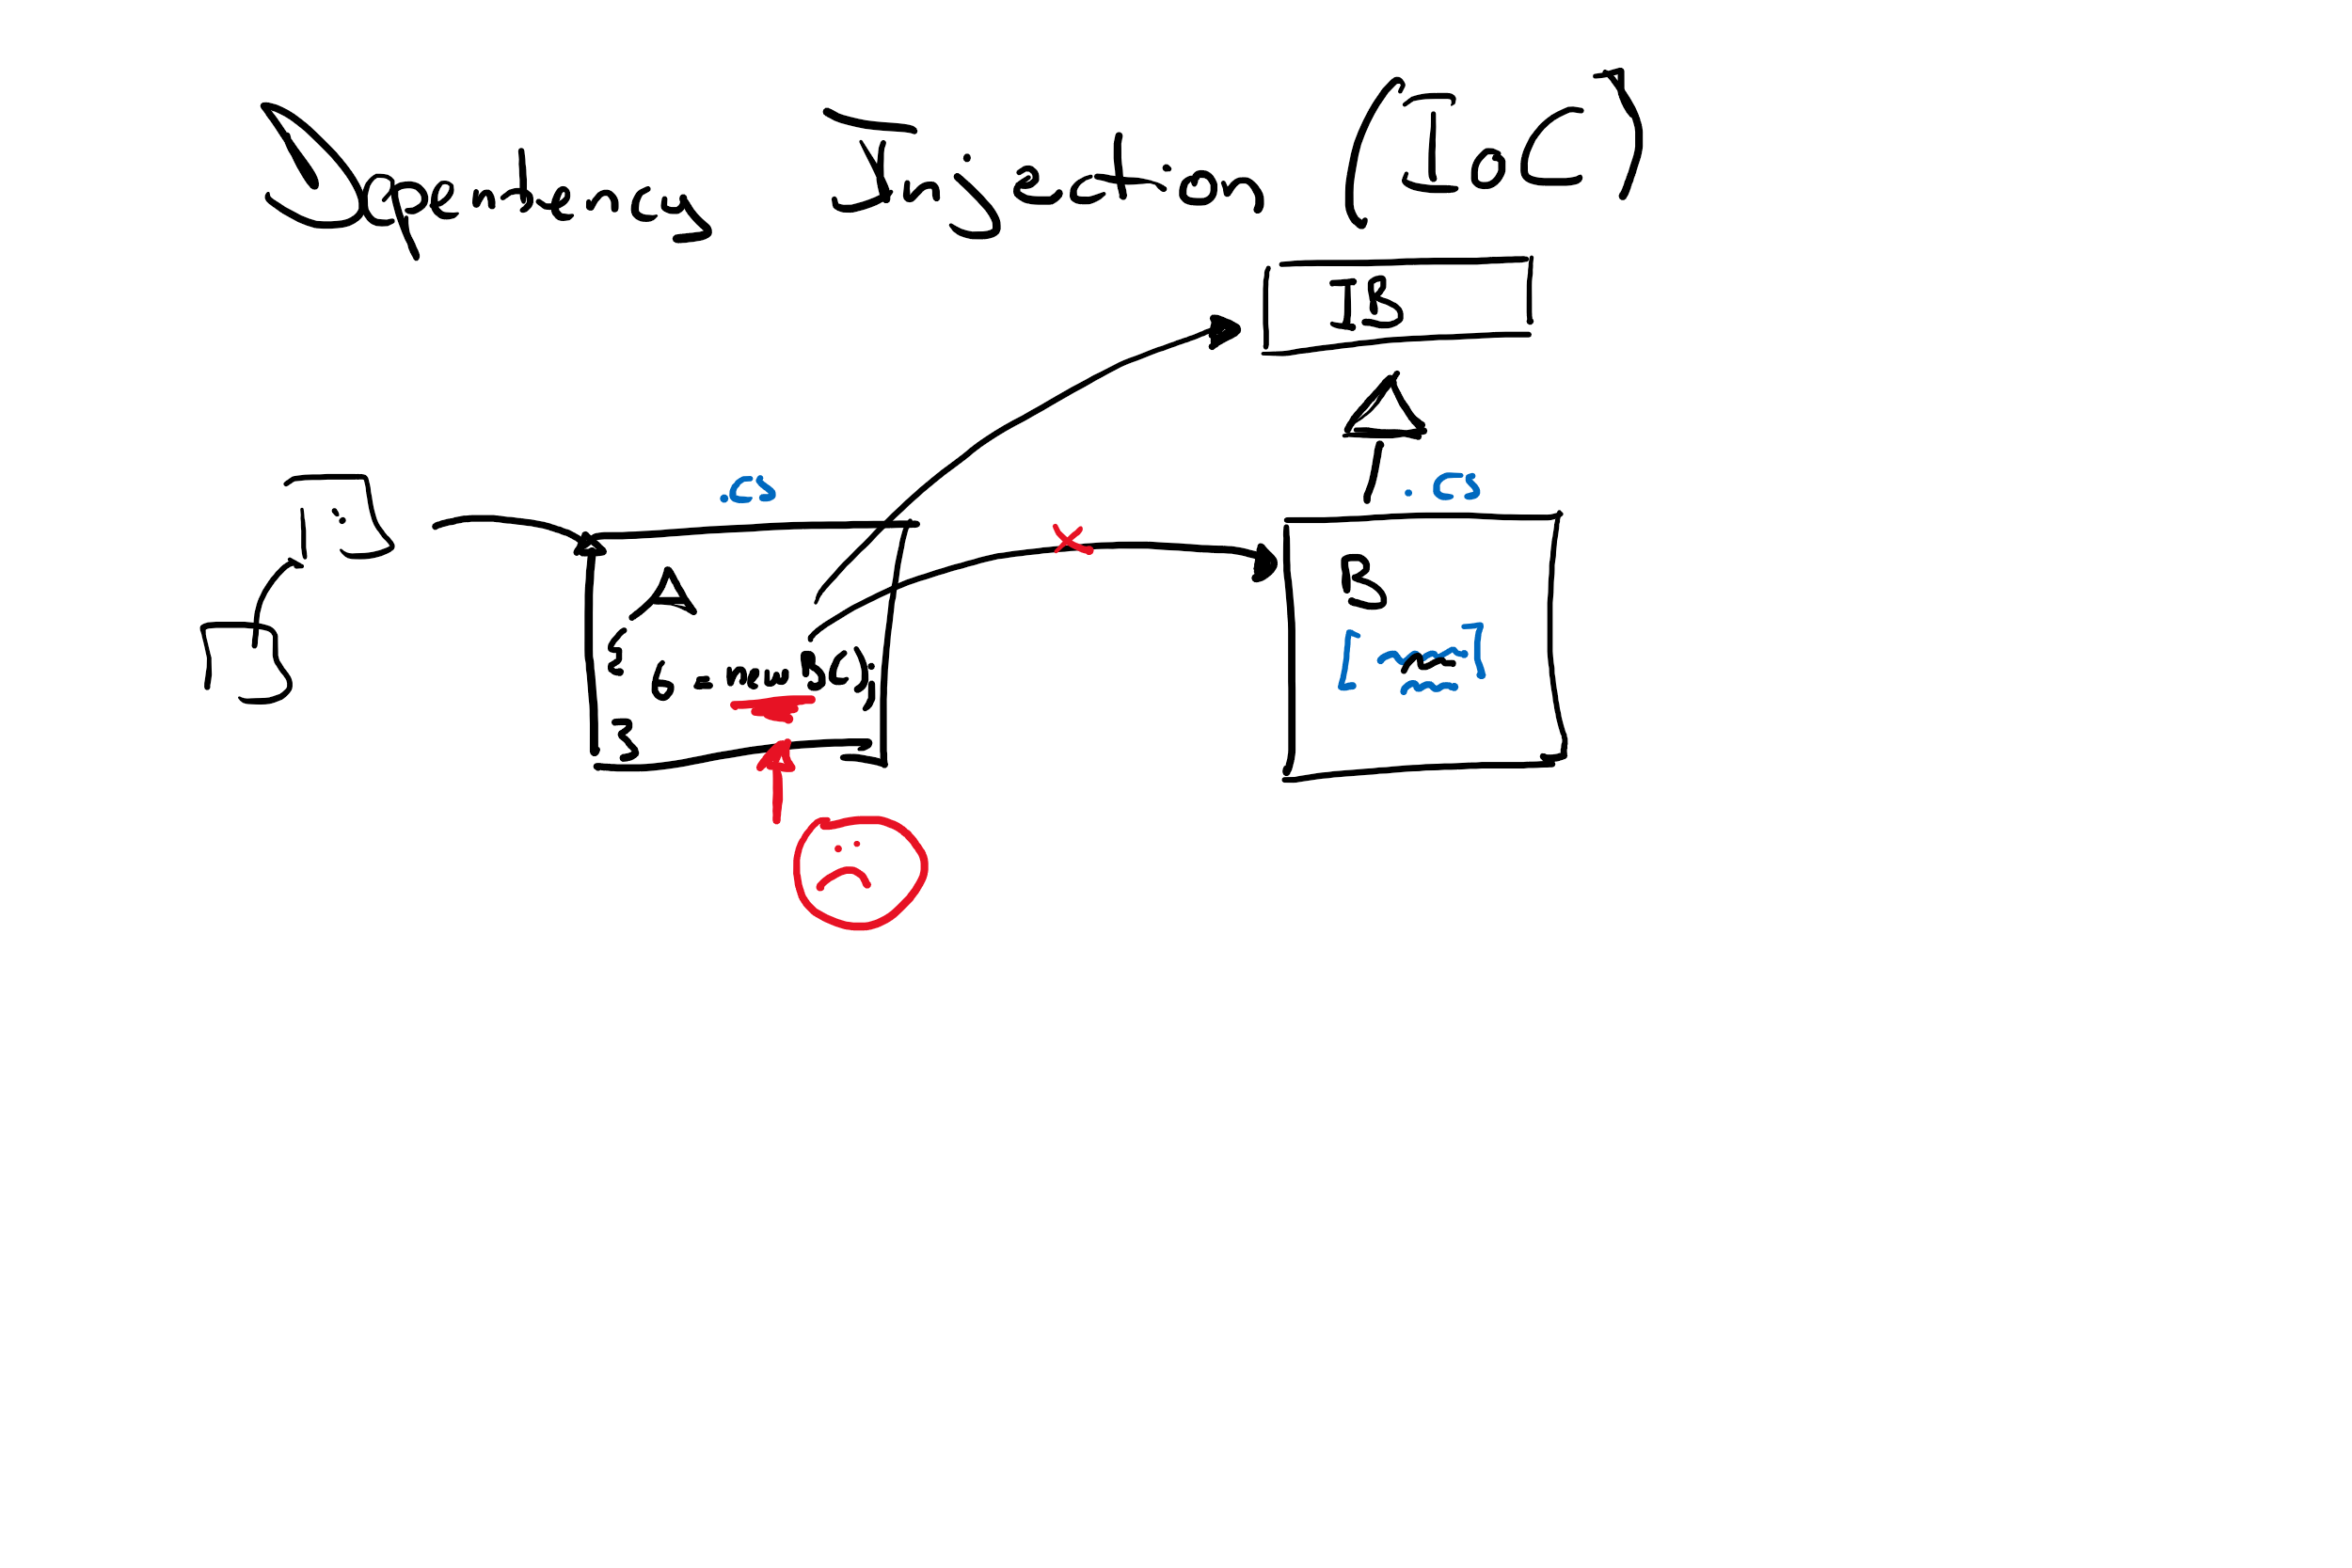 Dependency Injection (IoC)
IB
.cs
.cs
A
B
{
b = new B();
}